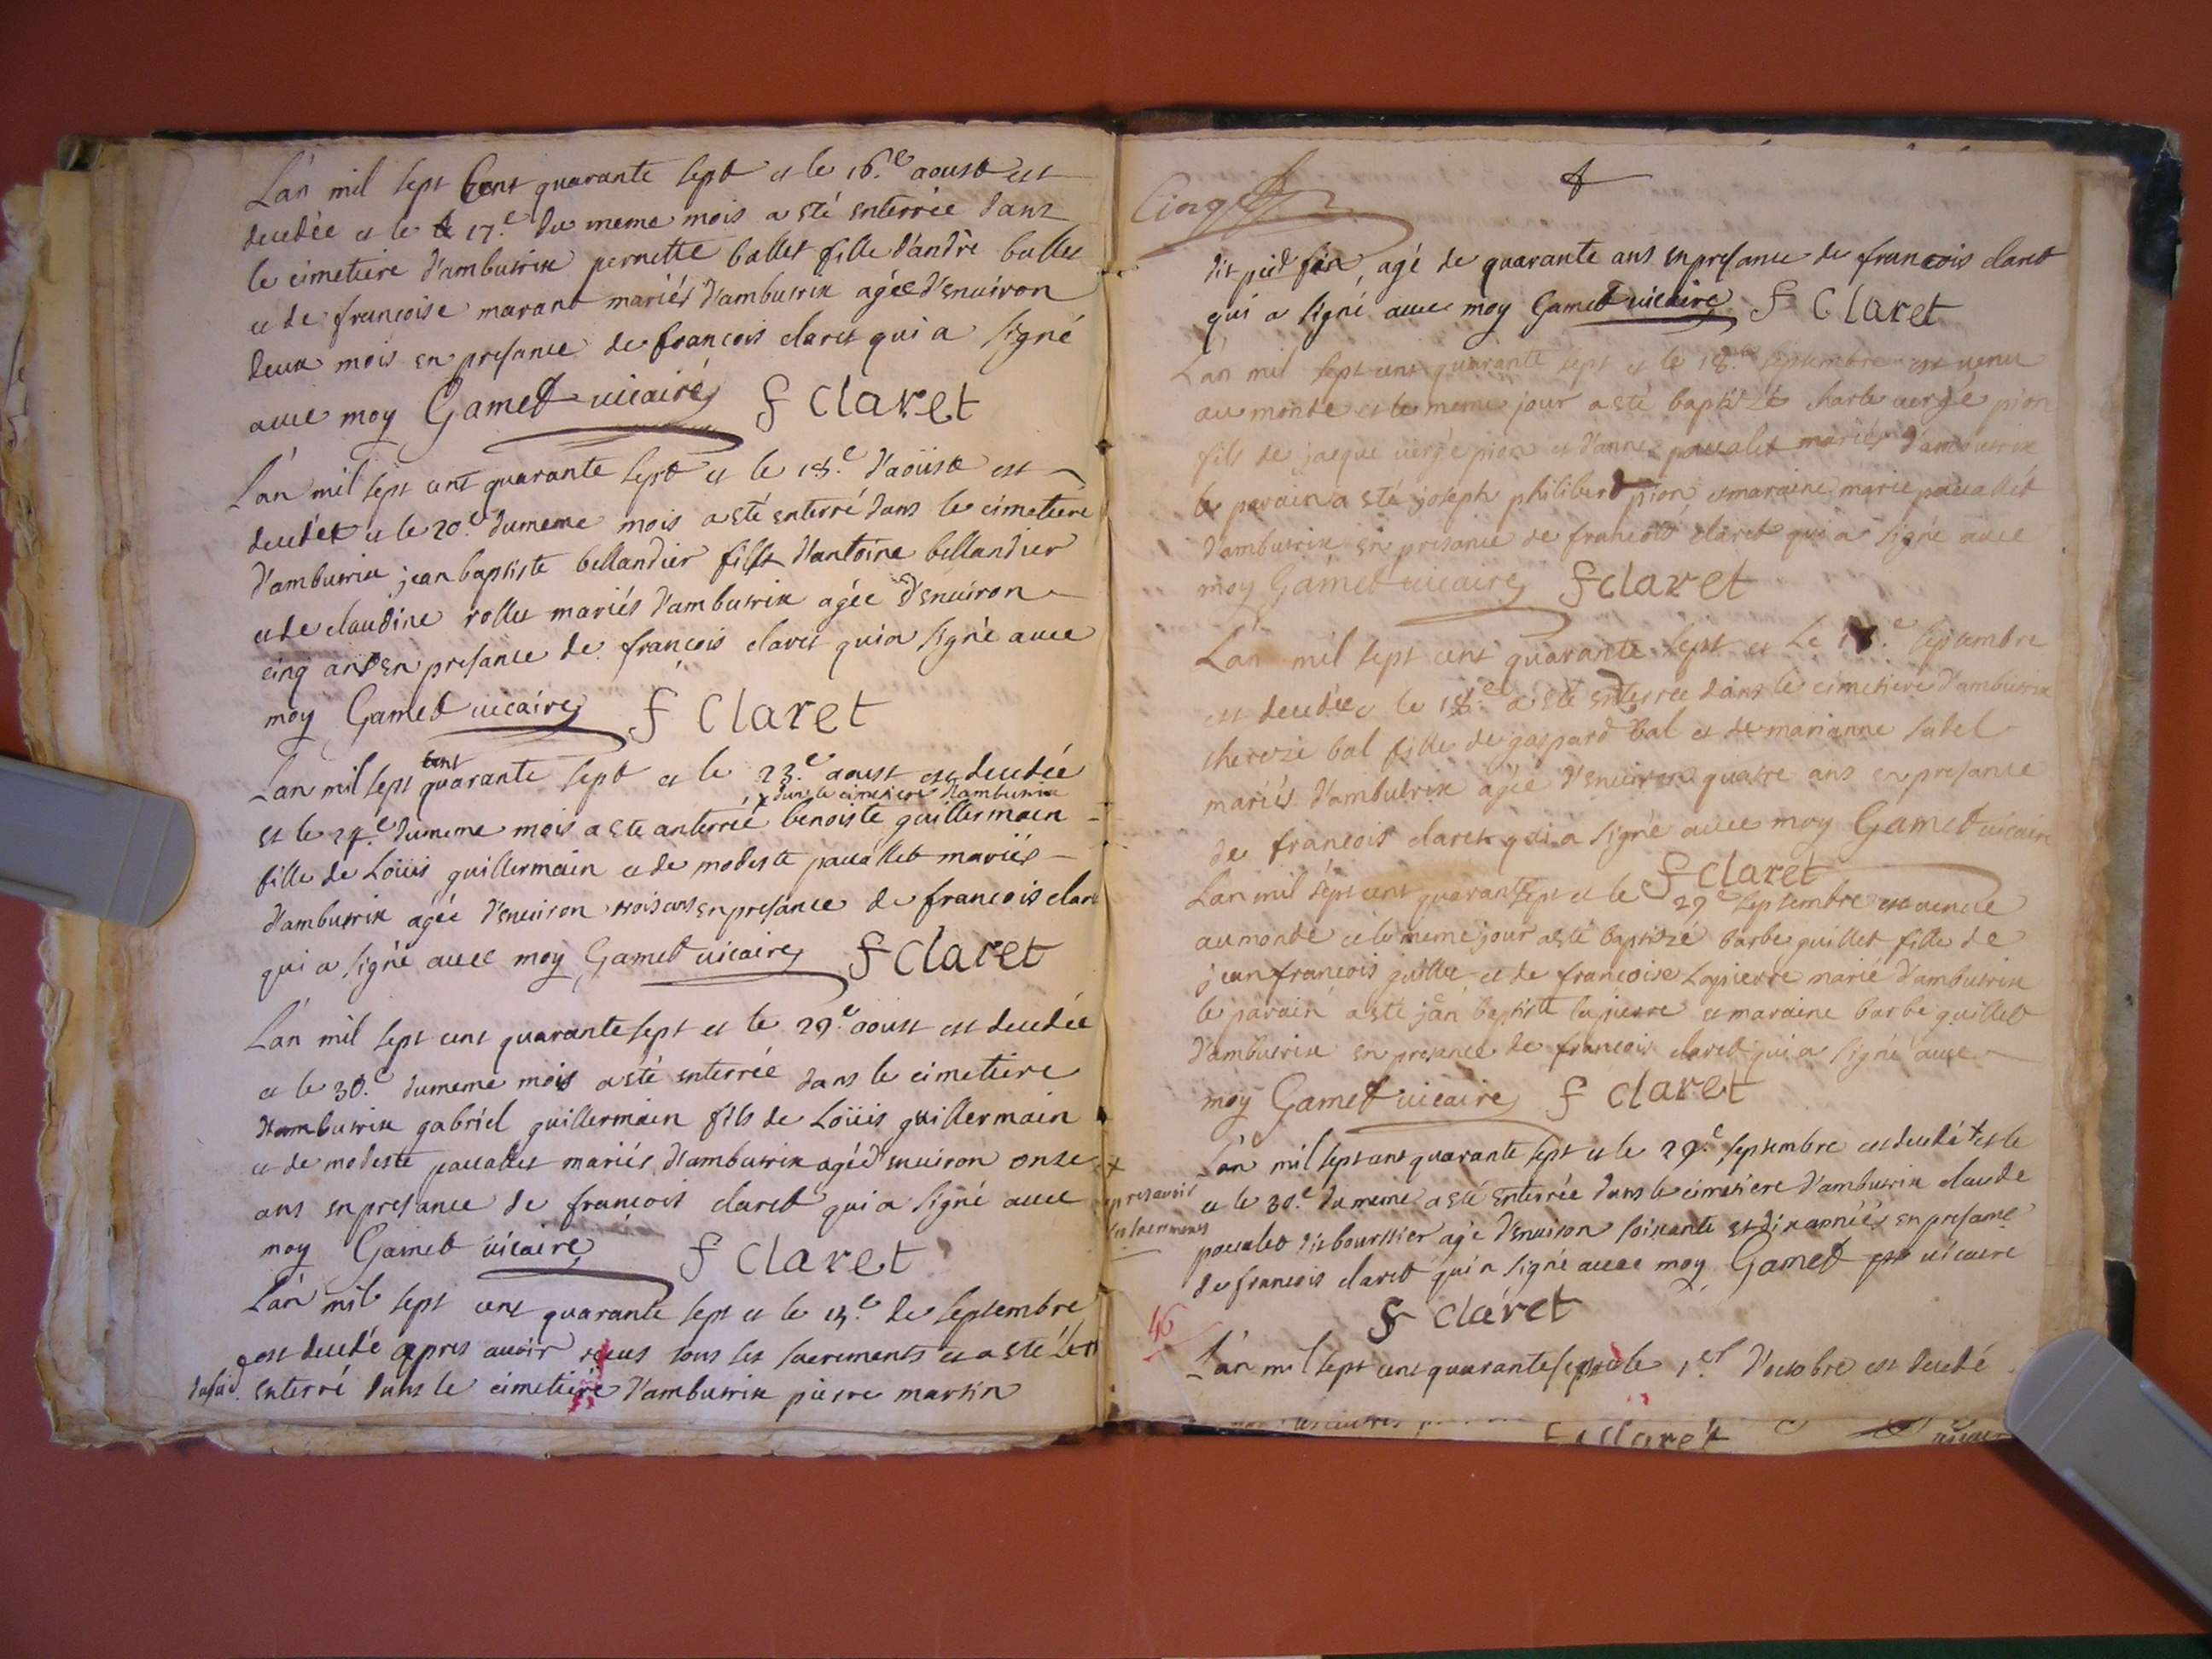 Lan mil sept Cent quarante sept et le 16.e aoust est
decedée et le 17.e du meme mois a sté enterrée dans
le cimetiere d'ambutrix pernette ballet fille d'andré ballet
et de francoise marant mariés d'ambutrix agée d'enuiron
deux mois en presance de francois claret qui a signé
auec moy Gamet uicaire F Claret
Lan mil sept cent quarante sept et le 18.e d'aoust est
decedet et le 20.e du meme mois a sté enterré dans le cimetiere
d'ambutrix jean baptiste bellandier fils d'antoine bellandier
et de claudine rollet mariés d'ambutrix agée d'enuiron
cinq ans en presance de francois claret qui a signé auec
moy Gamet uicaire F Claret
cent
Lan mil sept quarante sept et le 23.e aoust est decedée
x dans le cimetiere d'ambutrix
et le 24.e du meme mois a sté anterrée benoiste guillermain
fille de Loüis guillermain et de modeste pauallet mariés
d'ambutrix agée d'enuiron trois ans en presance de francois claret
qui a signé auec moy Gamet uicaire F Claret
Lan mil sept cent quarante sept et le 29.e aoust est decedée
et le 30.e du meme mois a sté enterrée dans le cimetiere
d'ambutrix gabriel guillermain fils de Loüis guillermain
et de modeste pauallet mariés d'ambutrix agée d'enuiron onze
ans en presance de francois claret qui a signé auec
moy Gamet uicaire F Claret
Lan mil sept cent quarante sept et le de septembre
est decedé apres auoir reçus tous les sacrements et a sté
enterré dans le cimetiere d'ambutrix pierre martin
dit pied fin, agé de quarante ans en presance de francois claret
qui a signé auec moy Gamet uicaire F Claret
Lan mil sept cent quarante sept et le 18.e septembre est uenu
au monde et le meme jour a sté baptizé charle uergé pion
fils de jacque uergé pion et d'anne pauallet mariés d'ambutrix
le parain a sté joseph philibert pion et maraine marie pauallet
d'ambutrix en presance de francois claret qui a signé auec
moy Gamet uicaire F Claret
Lan mil sept cent quarante sept et Le septembre
est decedée le 18.e a sté enterrée dans le cimetiere d'ambutrix
thereze bal fille de gaspard bal et de marianne sabel
mariés d'ambutrix agée d'enuiron quatre ans en presance
de francois claret qui a signé auec moy Gamet uicaire
F Claret
Lan mil sept cent quarante sept et le 29.e septembre est uenue
au monde et le meme jour a sté baptizé barbe guillet fille de
jean francois guillet et de francoise Lapierre marié d'ambutrix
le parain a sté jean baptiste lapierre et maraine barbe guillet
d'ambutrix en presance de francois claret qui a signé auec
moy Gamet uicaire F Claret
Lan mil sept cent quarante sept et le 29.e septembre est decedé + et le
et le 30.e du meme a sté enterrée dans le cimetiere d'ambutrix claude
pauallet dit bourssier agé d'enuiron soixante et dix années en presance
de francois claret qui a signé auec moy Gamet uicaire
F Claret
46
Lan mil sept cent quarante sept et le 1.er d'octobre est decedé